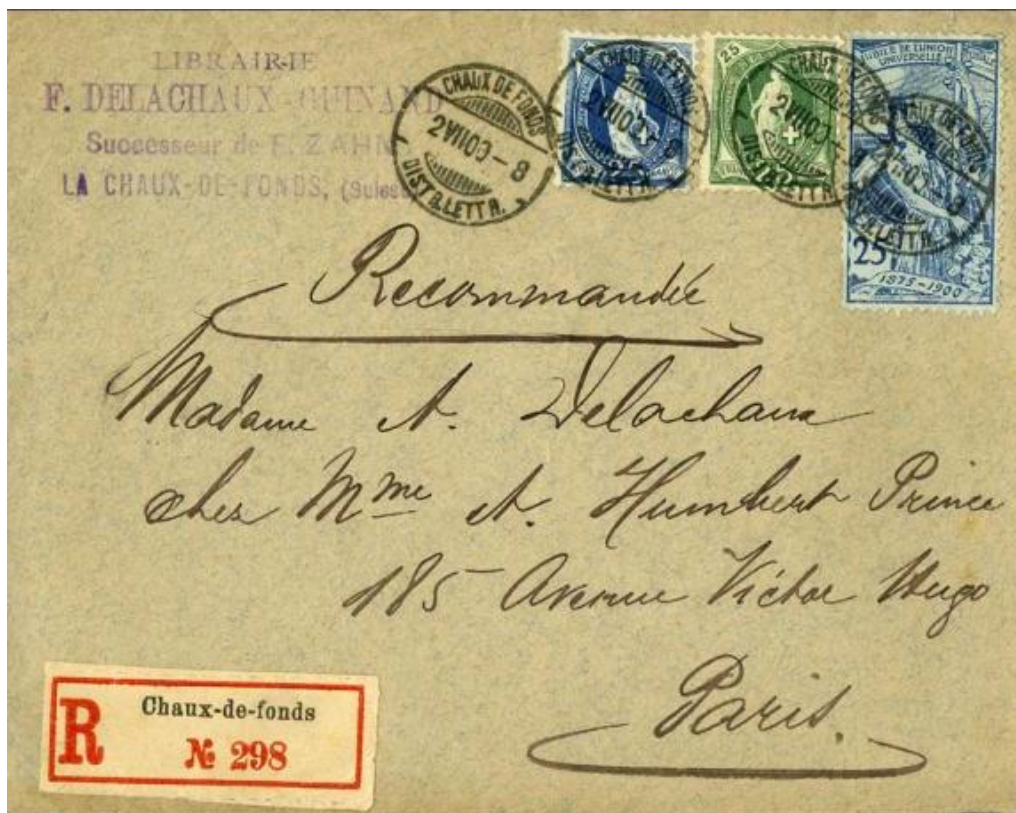 LIBRAIRIE
F. DELACHAUX-GUINAND
Successeur de F. ZAHN
LA CHAUX-DE-FONDS, (Suisse
CHAUX DE FONDS
2 VII 00 - 8
DISTR. LETTR.
25
25
CHAUX DE FONDS
DISTR. LETTR.
JUBILÉ DE L'UNION
POSTALE
UNIVERSELLE
CHAUX DE FONDS
25
1875-1900
Recommandée
Madame A. Delachaux
chez Mme A. Humbert Prince
185 Avenue Victor Hugo
Paris.
R
Chaux-de-fonds
№ 298